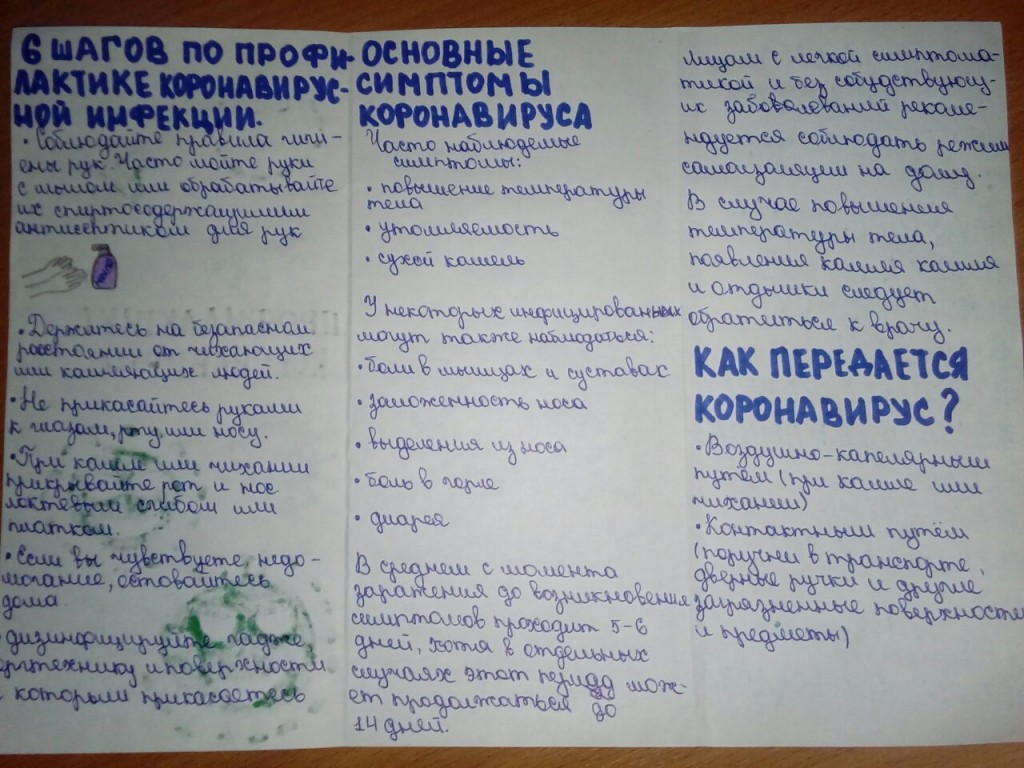 6 ШАГОВ ПО ПРОФИ-
ЛАКТИКЕ КОРОНАВИРУС-
НОЙ ИНФЕКЦИИ.
• Соблюдайте правила гиги-
ены рук. Часто мойте руки
с мылом или обрабатывайте
их спиртосодержащими
антисептиком для рук
• Держитесь на безопасном
расстоянии от чихающих
или кашляющих людей.
• Не прикасайтесь руками
к глазам, рту или носу.
• При кашле или чихании
прикрывайте рот и нос
локтевым сгибом или
платком.
• Если вы чувствуете недо-
могание, оставайтесь
дома.
дизинфицируйте гадже
оргтехнику и поверхности
к которым прикасаетесь
ОСНОВНЫЕ
СИМПТОМЫ
КОРОНАВИРУСА
Часто наблюдаемые
симптомы:
• повышение температуры
тела
• утомляемость
• сухой кашель
У некоторых инфицированных
могут также наблюдаться:
• боли в мышцах и суставах
• заложенность носа
• выделения из носа
• боль в горле
• диарея
В среднем с момента
заражения до возникновения
симптомов проходит 5-6
дней, хотя в отдельных
случаях этот период мож-
ет продолжаться до
14 дней.
Лицам с легкой симптома-
тикой и без сопудствующ-
их заболеваний рекоме-
ндуется соблюдать режим
самоизаляции на дому.
В случае повышения
температуры тела,
появления кашля
и отдышки следует
обратиться к врачу.
КАК ПЕРЕДАЕТСЯ
КОРОНАВИРУС?
• Воздушно-капелярным
путём (при кашле или
чихании)
• Контактным путём
(поручни в транспорте,
дверные ручки и другие
загрязненные поверхности
и предметы)